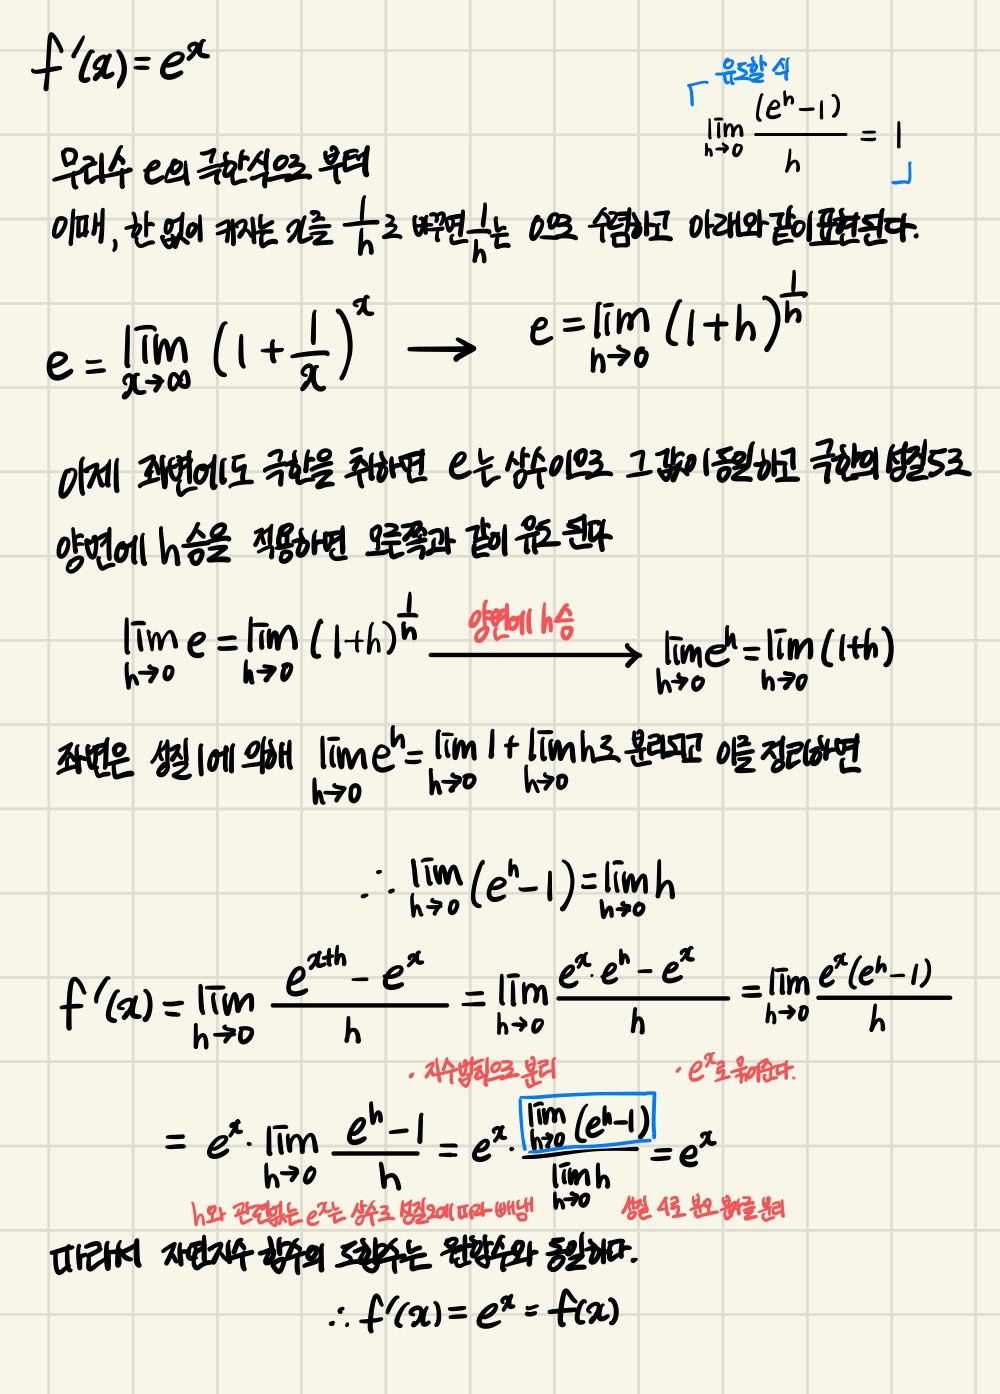 f'(x) = e^x
「 유도할 식
lim_{h→0} (e^h - 1) / h = 1 」
무리수 e의 극한식으로 부터
이때, 한 없이 커지는 x를 1/h로 바꾸면 1/h는 0으로 수렴하고 아래와 같이 표현된다.
e = lim_{x→∞} (1 + 1/x)^x → e = lim_{h→0} (1+h)^{1/h}
이제 좌변에도 극한을 취하면 e는 상수이으로 그 값이 동일하고 극한의 성질5로
양변에 h승을 적용하면 오른쪽과 같이 유도 된다
lim_{h→0} e = lim_{h→0} (1+h)^{1/h} 양변에 h승 → lim_{h→0} e^h = lim_{h→0} (1+h)
좌변은 성질1에 의해 lim_{h→0} e^h = lim_{h→0} 1 + lim_{h→0} h로 분리되고 이를 정리하면
∴ lim_{h→0} (e^h - 1) = lim_{h→0} h
f'(x) = lim_{h→0} (e^{x+h} - e^x) / h = lim_{h→0} (e^x · e^h - e^x) / h = lim_{h→0} e^x(e^h - 1) / h
· 지수법칙으로 분리 · e^x로 묶어준다.
= e^x · lim_{h→0} (e^h - 1) / h = e^x · lim_{h→0} (e^h - 1) / lim_{h→0} h = e^x
h와 관련없는 e^x는 상수로 성질2에 따라 빼냄 성질 4로 분모 분자를 분리
따라서 자연지수 함수의 도함수는 원함수와 동일하다.
∴ f'(x) = e^x = f(x)